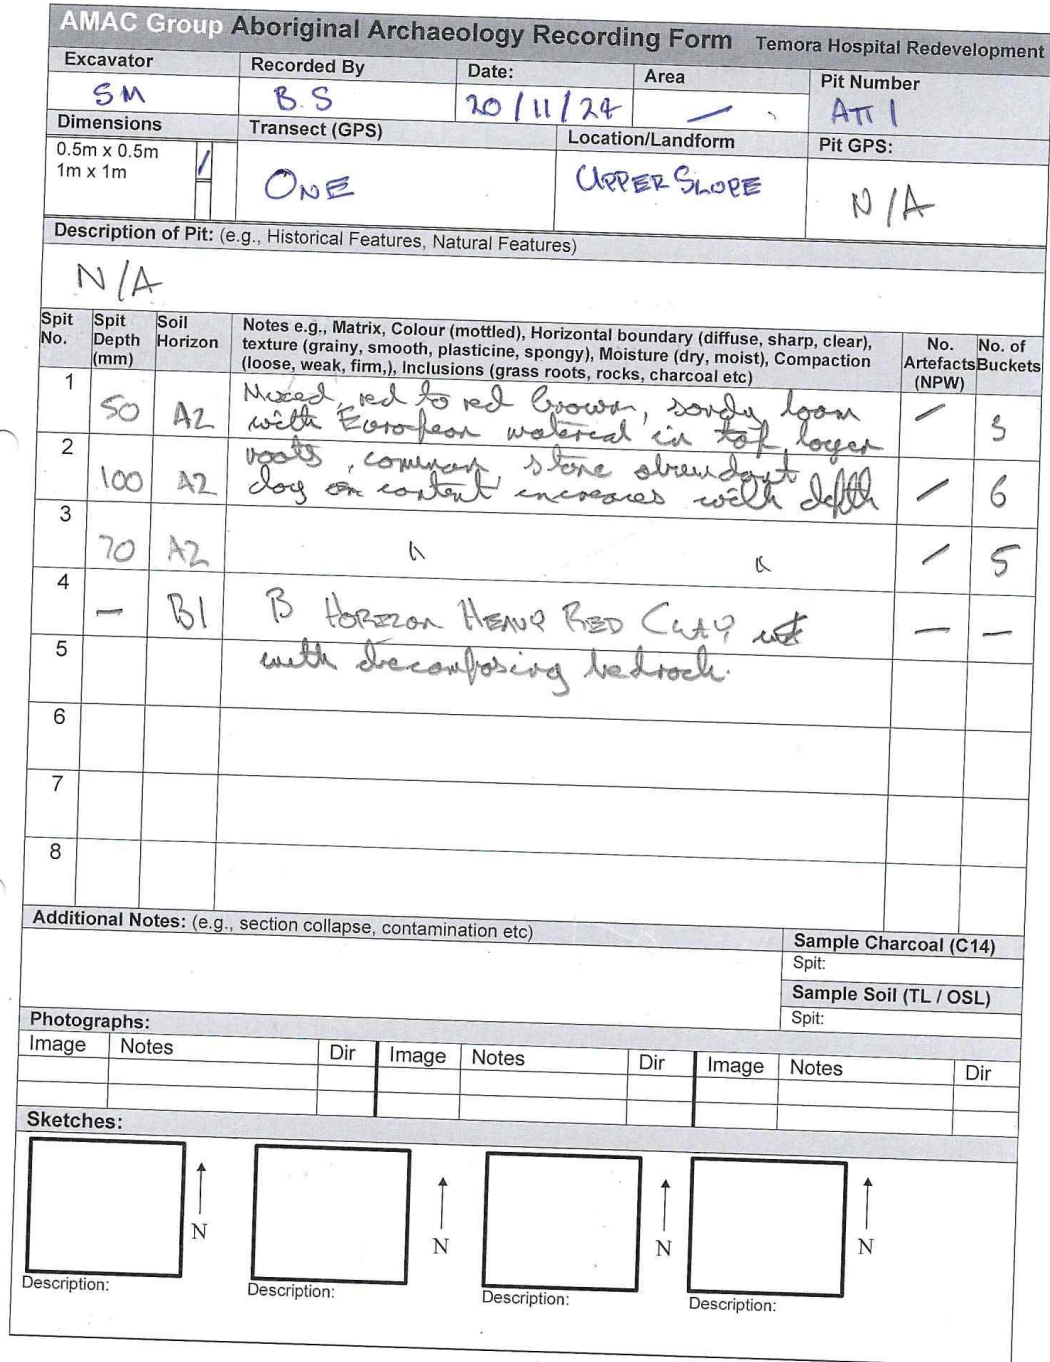 AMAC Group Aboriginal Archaeology Recording Form Temora Hospital Redevelopment
Excavator Recorded By Date: Area Pit Number
SM B.S 20/11/24 — ATT 1
Dimensions Transect (GPS) Location/Landform Pit GPS:
0.5m x 0.5m /
1m x 1m
ONE UPPER SLOPE N/A
Description of Pit: (e.g., Historical Features, Natural Features)
N/A
Spit No. Spit Depth (mm) Soil Horizon Notes e.g., Matrix, Colour (mottled), Horizontal boundary (diffuse, sharp, clear), texture (grainy, smooth, plasticine, spongy), Moisture (dry, moist), Compaction (loose, weak, firm,), Inclusions (grass roots, rocks, charcoal etc) No. Artefacts (NPW) No. of Buckets
1 50 A2 Mixed, red to red brown, sandy loam — 5
with European material in top layer
2 100 A2 roots, common, stone abundant — 6
clay content increases with depth
3 70 A2 " " — 5
4 — B1 B HORIZON HEAVY RED CLAY — —
5 with decomposing bedrock.
6
7
8
Additional Notes: (e.g., section collapse, contamination etc)
Sample Charcoal (C14)
Spit:
Sample Soil (TL / OSL)
Spit:
Photographs:
Image Notes Dir Image Notes Dir Image Notes Dir
Sketches:
N N N N
Description: Description: Description: Description: